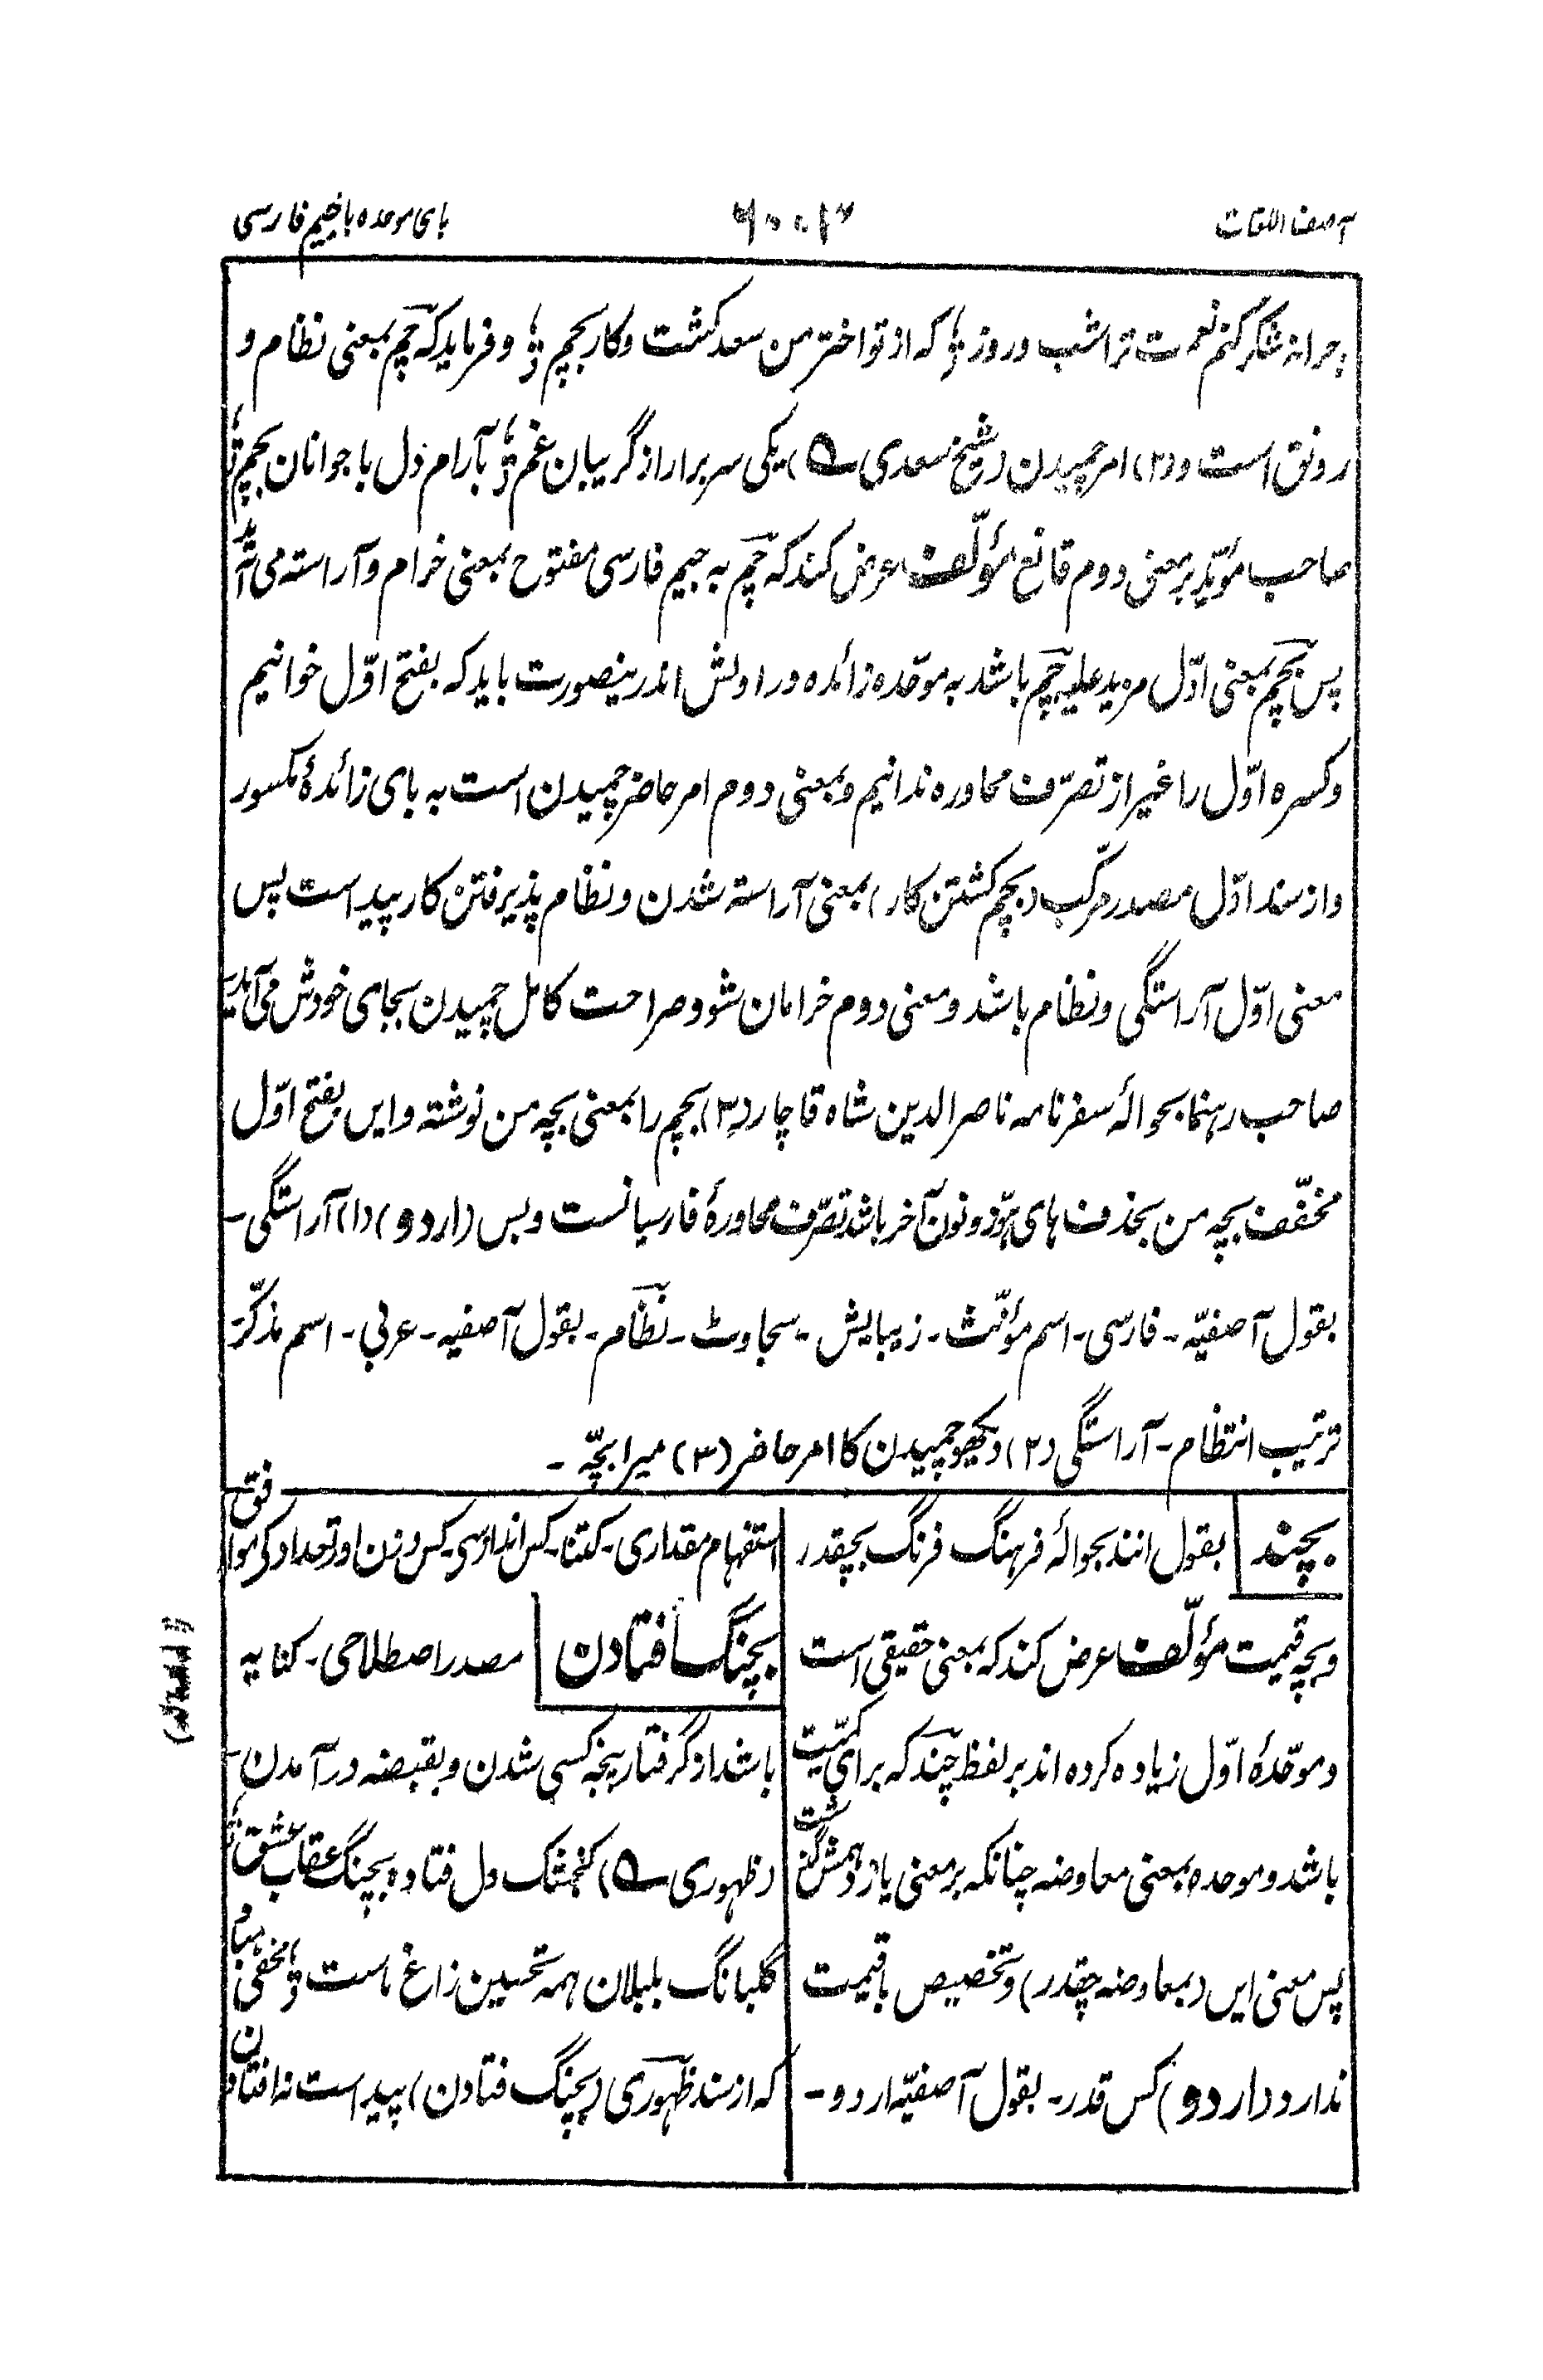 آصف اللغات
بای موحده باجیم فارسی
چرانه شکر کنم نعمت ترا شب و روز ؤ که از تو اختر من سعد گشت و کار بچم ؤ و فرماید که چم بمعنی نظام و
رونق است و (۲) امر چمیدن (شیخ سعدی ؎) یکی سر برار از گریبان غم ؤ بآرام دل با جوانان بچم ؤ
صاحب مؤید بر معنی دوم قانع مؤلّف عرض کند که چم به جیم فارسی مفتوح بمعنی خرام و آراسته می آید
پس بچم بمعنی اوّل مزید علیه چم باشد به موحّده زائده در اولش اندرینصورت باید که بفتح اوّل خوانیم
و کسره اوّل را غیر از تصرّف محاوره ندانیم و بمعنی دوم امر حاضر چمیدن است به بای زائدهٔ مکسور
و از سند اوّل مصدر مرکّب (بچم گشتن کار) بمعنی آراسته شدن و نظام پذیرفتن کار پیداست پس
معنی اوّل آراستگی و نظام باشد و معنی دوم خرامان شو و صراحت کامل چمیدن بجای خودش می آید
صاحب رهنما بحوالهٔ سفرنامه ناصر الدین شاه قاچار (۳) بچم را بمعنی بچه من نوشته و این بفتح اوّل
مخفّف بچه من بحذف های هوّز و نون آخر باشد تصرّف محاورهٔ فارسیانست و بس (اردو) (۱) آراستگی ـ
بقول آصفیّه ـ فارسی ـ اسم مؤنّث ـ زیبایش ـ سجاوٹ ـ نظام ـ بقول آصفیه ـ عربی ـ اسم مذکّر ـ
ترتیب انتظام ـ آراستگی (۲) دیکھو چمیدن کا امر حاضر (۳) میرا بچّه ـ
بچند بقول انند بحوالهٔ فرهنگ فرنگ بچقدر
و بچه قیمت مؤلّف عرض کند که بمعنی حقیقی است
و موحّدهٔ اوّل زیاده کرده اند بر لفظ چند که برای کمّیت
باشد و موحده بمعنی معاوضه چنانکه بر معنی یازدهمش گذشت
پس معنی این (بمعاوضه چقدر) و تخصیص با قیمت
ندارد (اردو) کس قدر ـ بقول آصفیّه اردو ـ
استفهام مقداری ـ کتنا ـ کس انداز سی ـ کس وزن اور تعداد کی موافق
بچنگ افتادن مصدر اصطلاحی ـ کنایه
باشد از گرفتار پنجه کسی شدن و بقبضه در آمدن ـ
(ظهوری ؎) کنجشک دل فتاده بچنگ عقاب عشق ؤ
گلبانگ بلبلان همه تحسین زاغ ماست ؤ مخفی مباد
که از سند ظهوری (بچنگ فتادن) پیداست نه افتادن